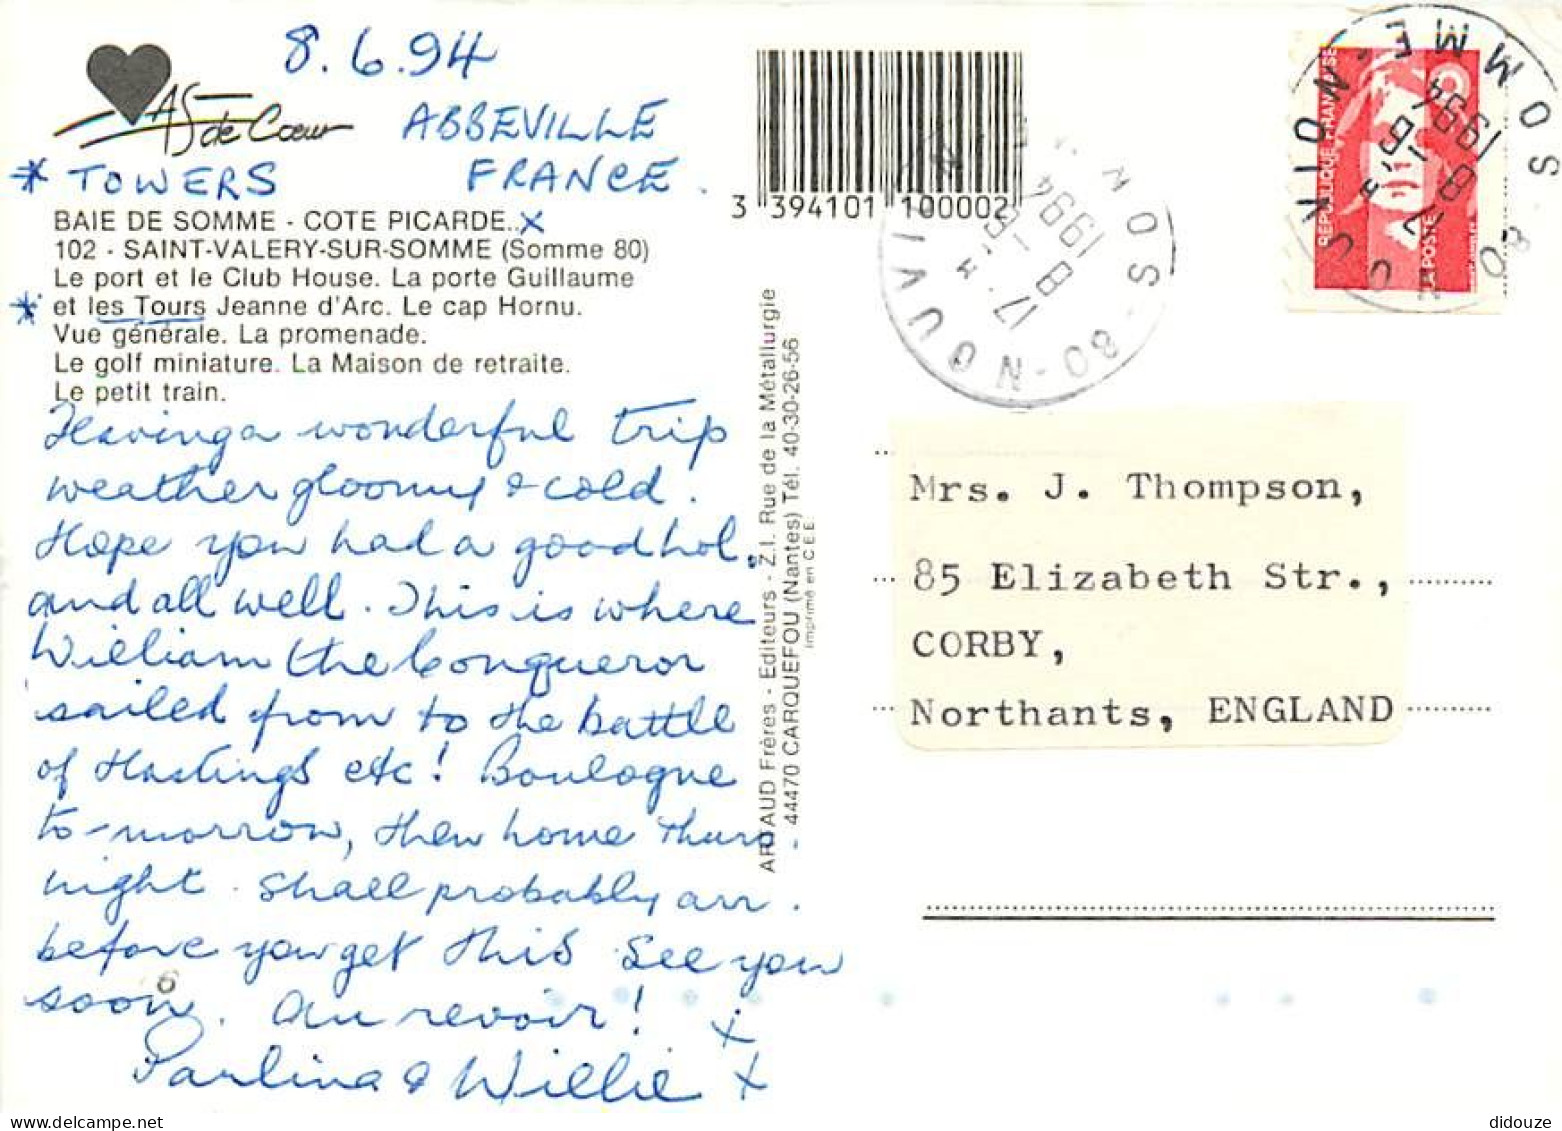 8.6.94
AS de Cœur
ABBEVILLE
* TOWERS FRANCE.
BAIE DE SOMME - COTE PICARDE..x
102 - SAINT-VALERY-SUR-SOMME (Somme 80)
Le port et le Club House. La porte Guillaume
* et les Tours Jeanne d'Arc. Le cap Hornu.
Vue générale. La promenade.
Le golf miniature. La Maison de retraite.
Le petit train.
Having a wonderful trip
weather gloomy & cold.
Hope you had a good hol.
and all well. This is where
William the Conqueror
sailed from to the battle
of Hastings etc! Boulogne
to-morrow, then home Thurs.
night. Shall probably arr.
before you get this See you
soon. Au revoir! x
Paulina & Willie x
6
3 394101 100002
ARTAUD Frères - Editeurs - Z.I. Rue de la Métallurgie
44470 CARQUEFOU (Nantes) Tél. 40-30-26-56
Imprimé en C.E.E.
80 - NOUVION
SOMME
17 H
8 - 6
1994
RÉPUBLIQUE FRANÇAISE
LA POSTE
80 NOUVION SOMME
17 H
8 - 6
1994
Mrs. J. Thompson,
85 Elizabeth Str.,
CORBY,
Northants, ENGLAND
didouze